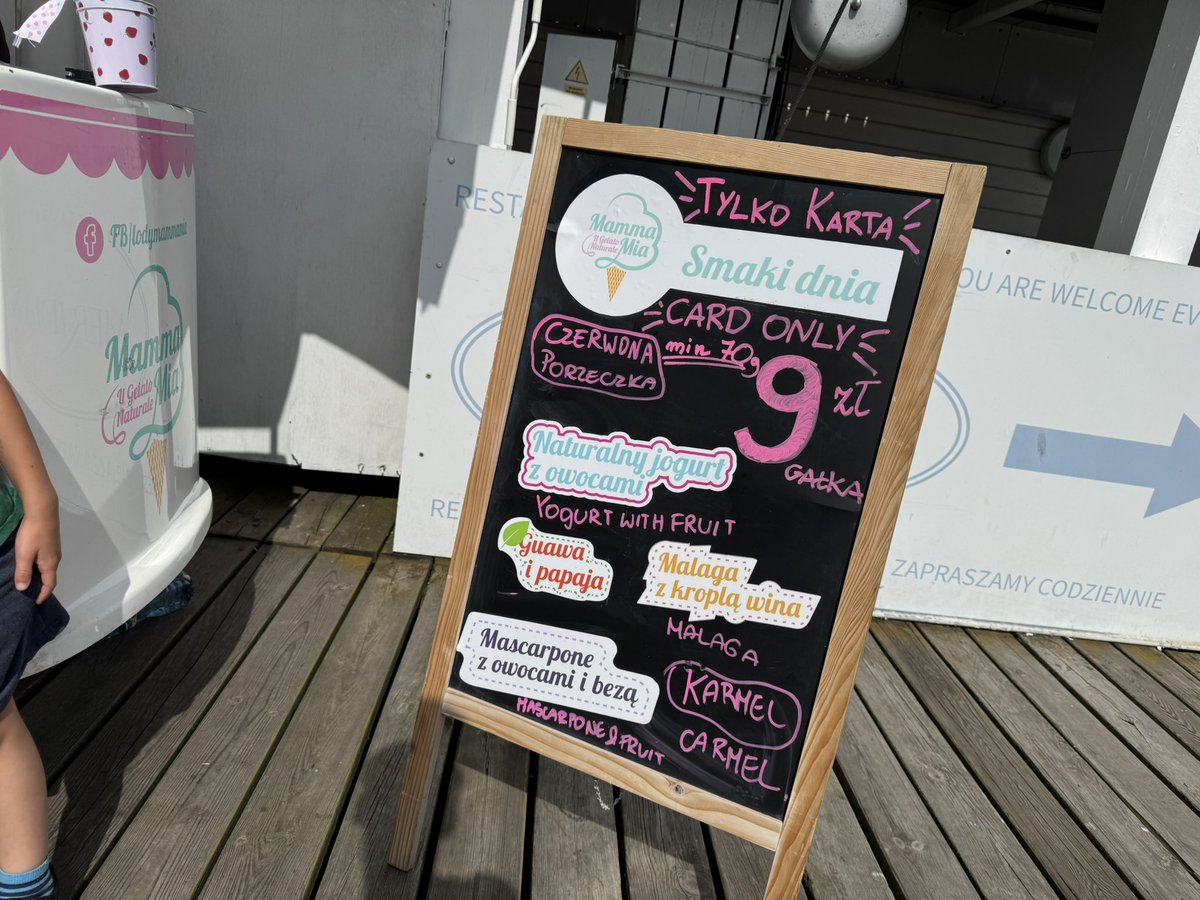 FB/lodymammamia
Mamma
Mia
Il Gelato
Naturale
REST
TYLKO KARTA
Mamma
Mia
Il Gelato
Naturale
Smaki dnia
CARD ONLY
min 70g
CZERWONA
PORZECZKA
9 ZŁ
GAŁKA
Naturalny jogurt
z owocami
YOGURT WITH FRUIT
Guawa
i papaja
Malaga
z kroplą wina
MALAGA
Mascarpone
z owocami i bezą
MASCARPONE & FRUIT
KARMEL
CARMEL
RE
OU ARE WELCOME EV
ZAPRASZAMY CODZIENNIE